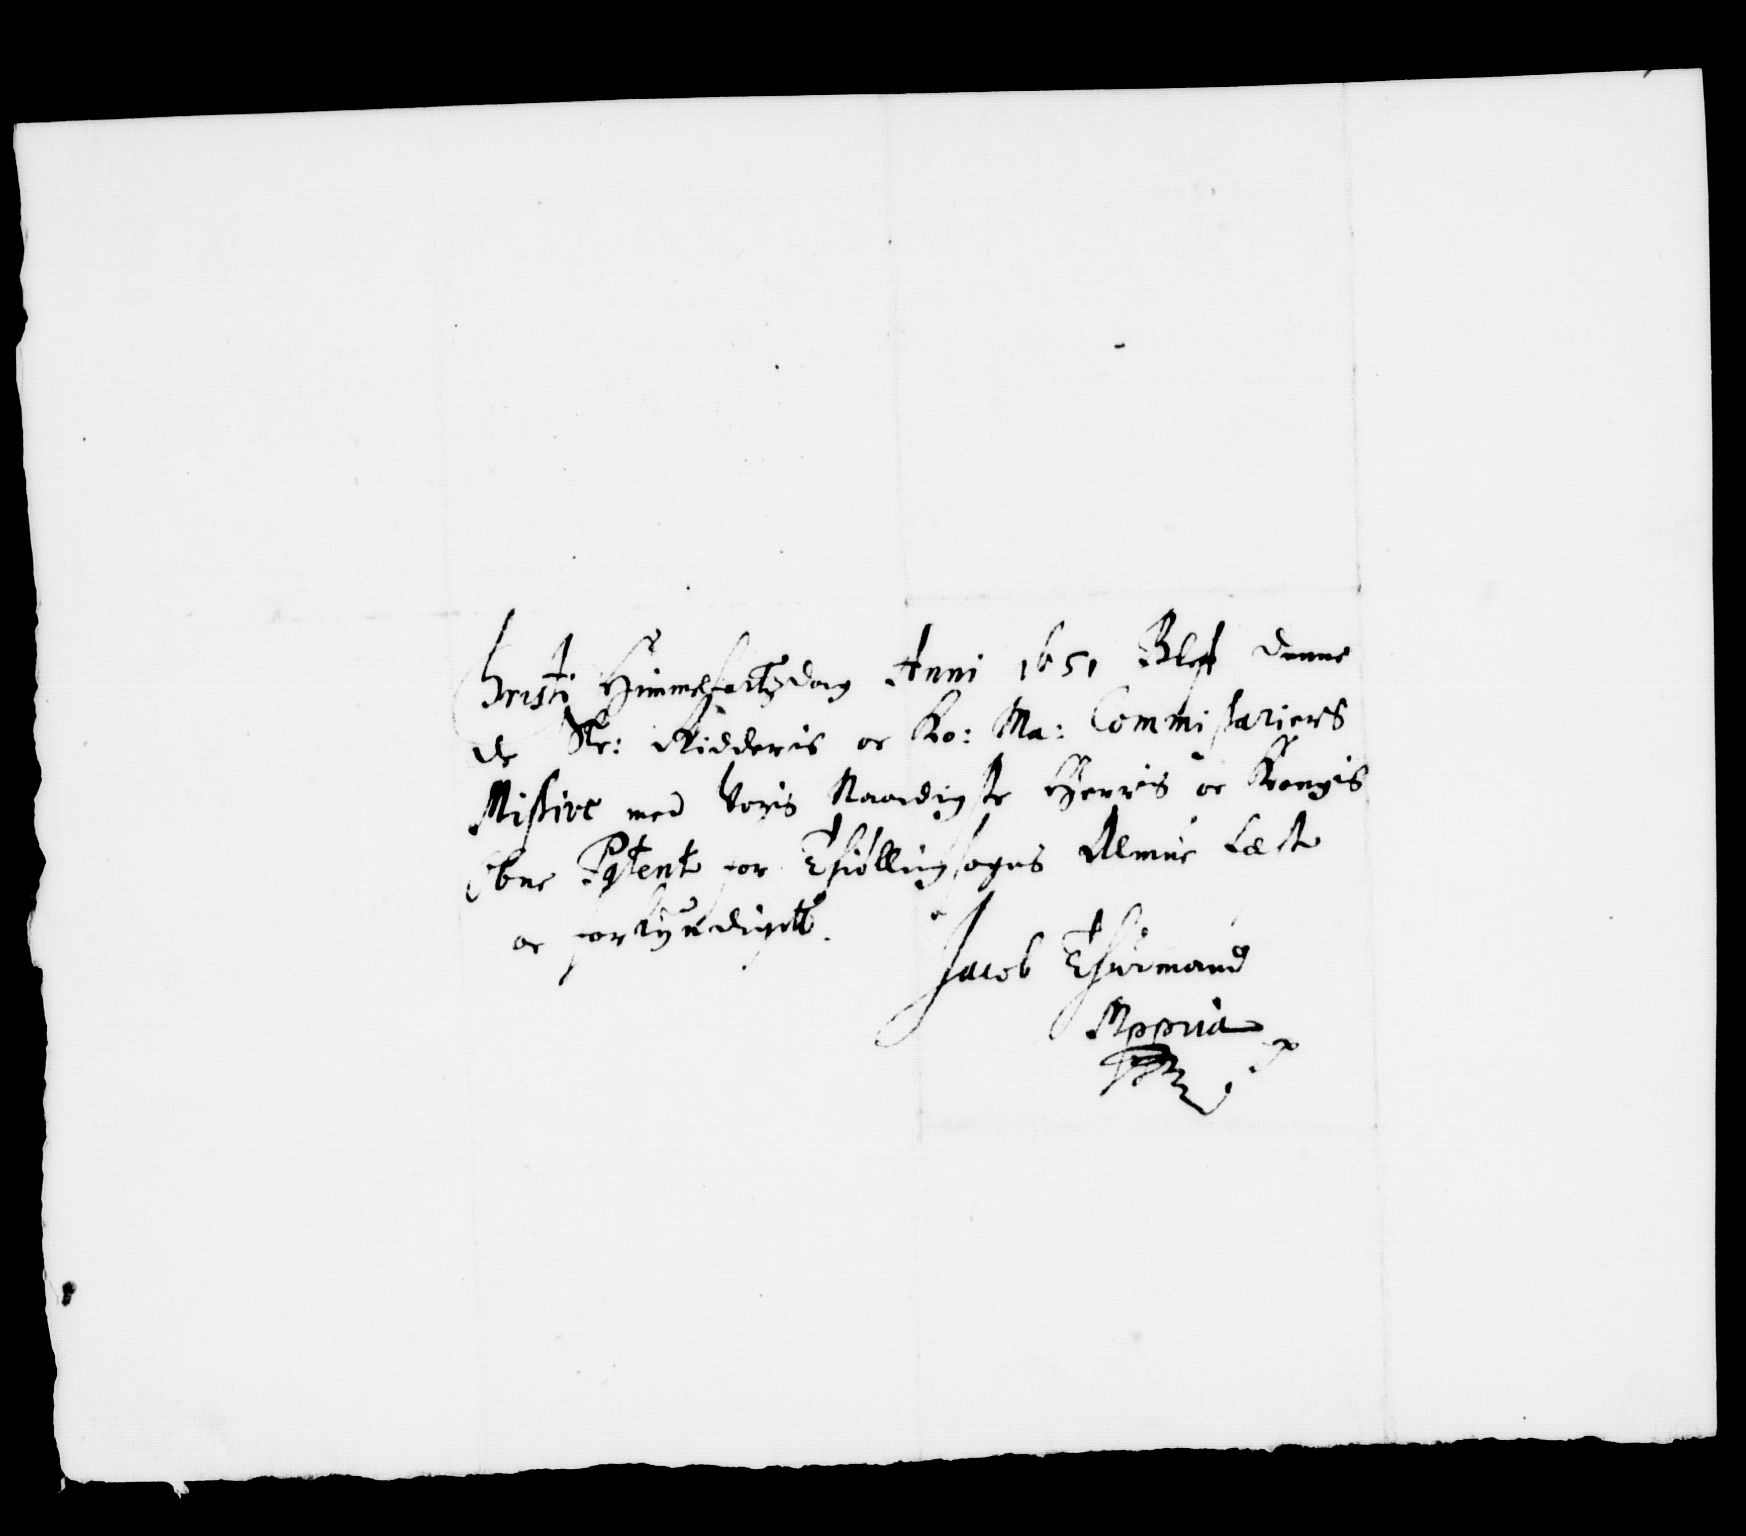 Christi Himmelfartzdag Anni 1651 Bleff denne
de Str: Ridderis oc Ko: Ma: Commissariers
Missive med Voris Naadigste Herris oc Kongis
Obne Patent for Thiølling sogns Almue Læste
oc forkyndigett.
Jacob Thurmand
Mppria